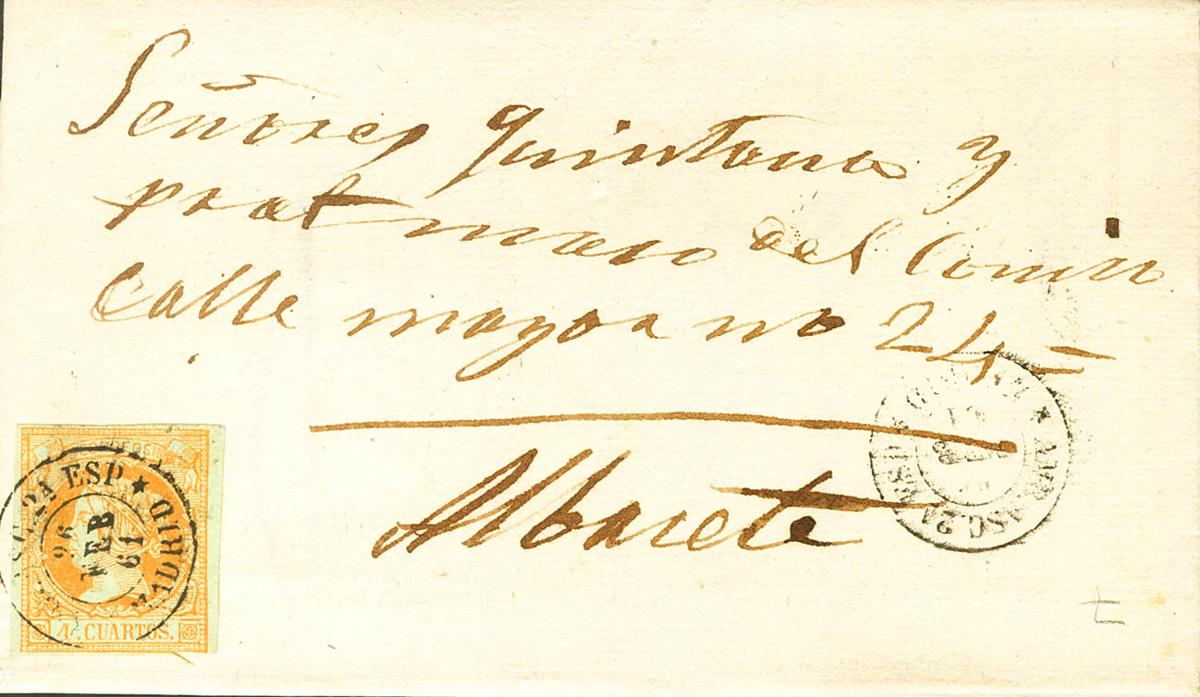 Señores Quintana y
prat maso del Comer
calle mayor no 24
Albacete
ESP ★
MADRID
26
FEB
61
4 CUARTOS.
AMB. ASC. 2A ESP